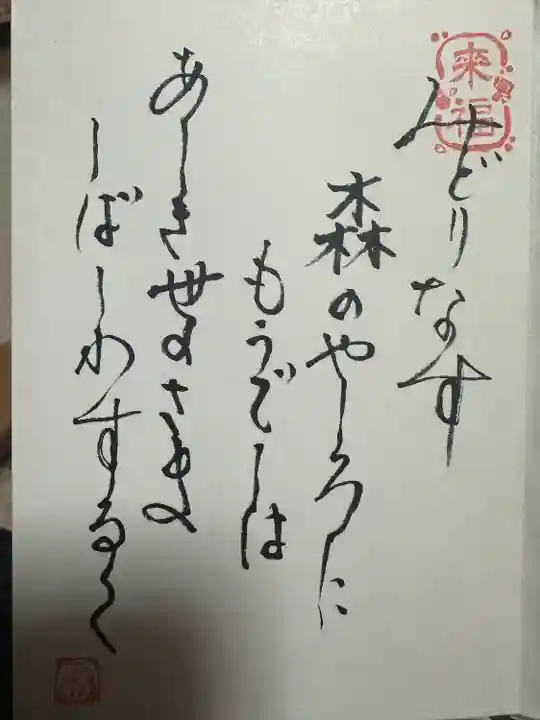 来福
みどりなす
森のやしろに
もうでしは
あしき世のさまを
しばしわする